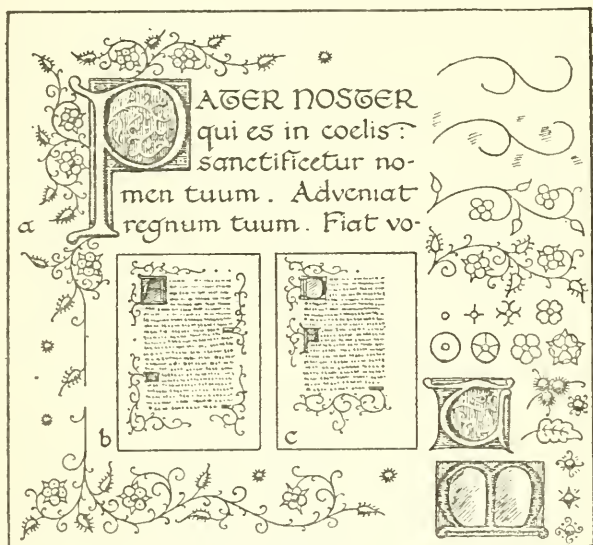 PATER NOSTER
qui es in coelis:
sanctificetur no-
men tuum. Adveniat
regnum tuum. Fiat vo-
a
b
c